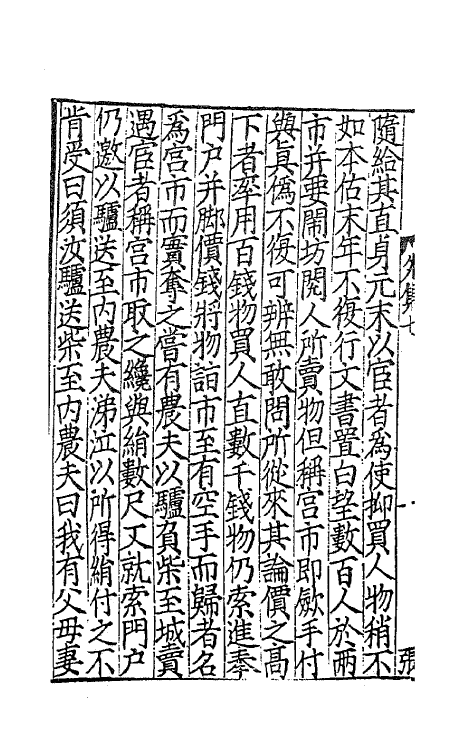 隨給其直貞元末以宦者爲使抑買人物稍不
如本估末年不復行文書置白望數百人於兩
市并要鬧坊閲人所賣物但稱宮市即歛手付
與真僞不復可辨無敢問所從來其論價之髙
下者率用百錢物買人直數千錢物仍索進奉
門户并脚價錢將物詣市至有空手而歸者名
爲宮市而實奪之嘗有農夫以驢負柴至城賣
遇宦者稱宮市取之纔與絹數尺又就索門户
仍邀以驢送至内農夫涕泣以所得絹付之不
肯受曰須汝驢送柴至内農夫曰我有父母妻